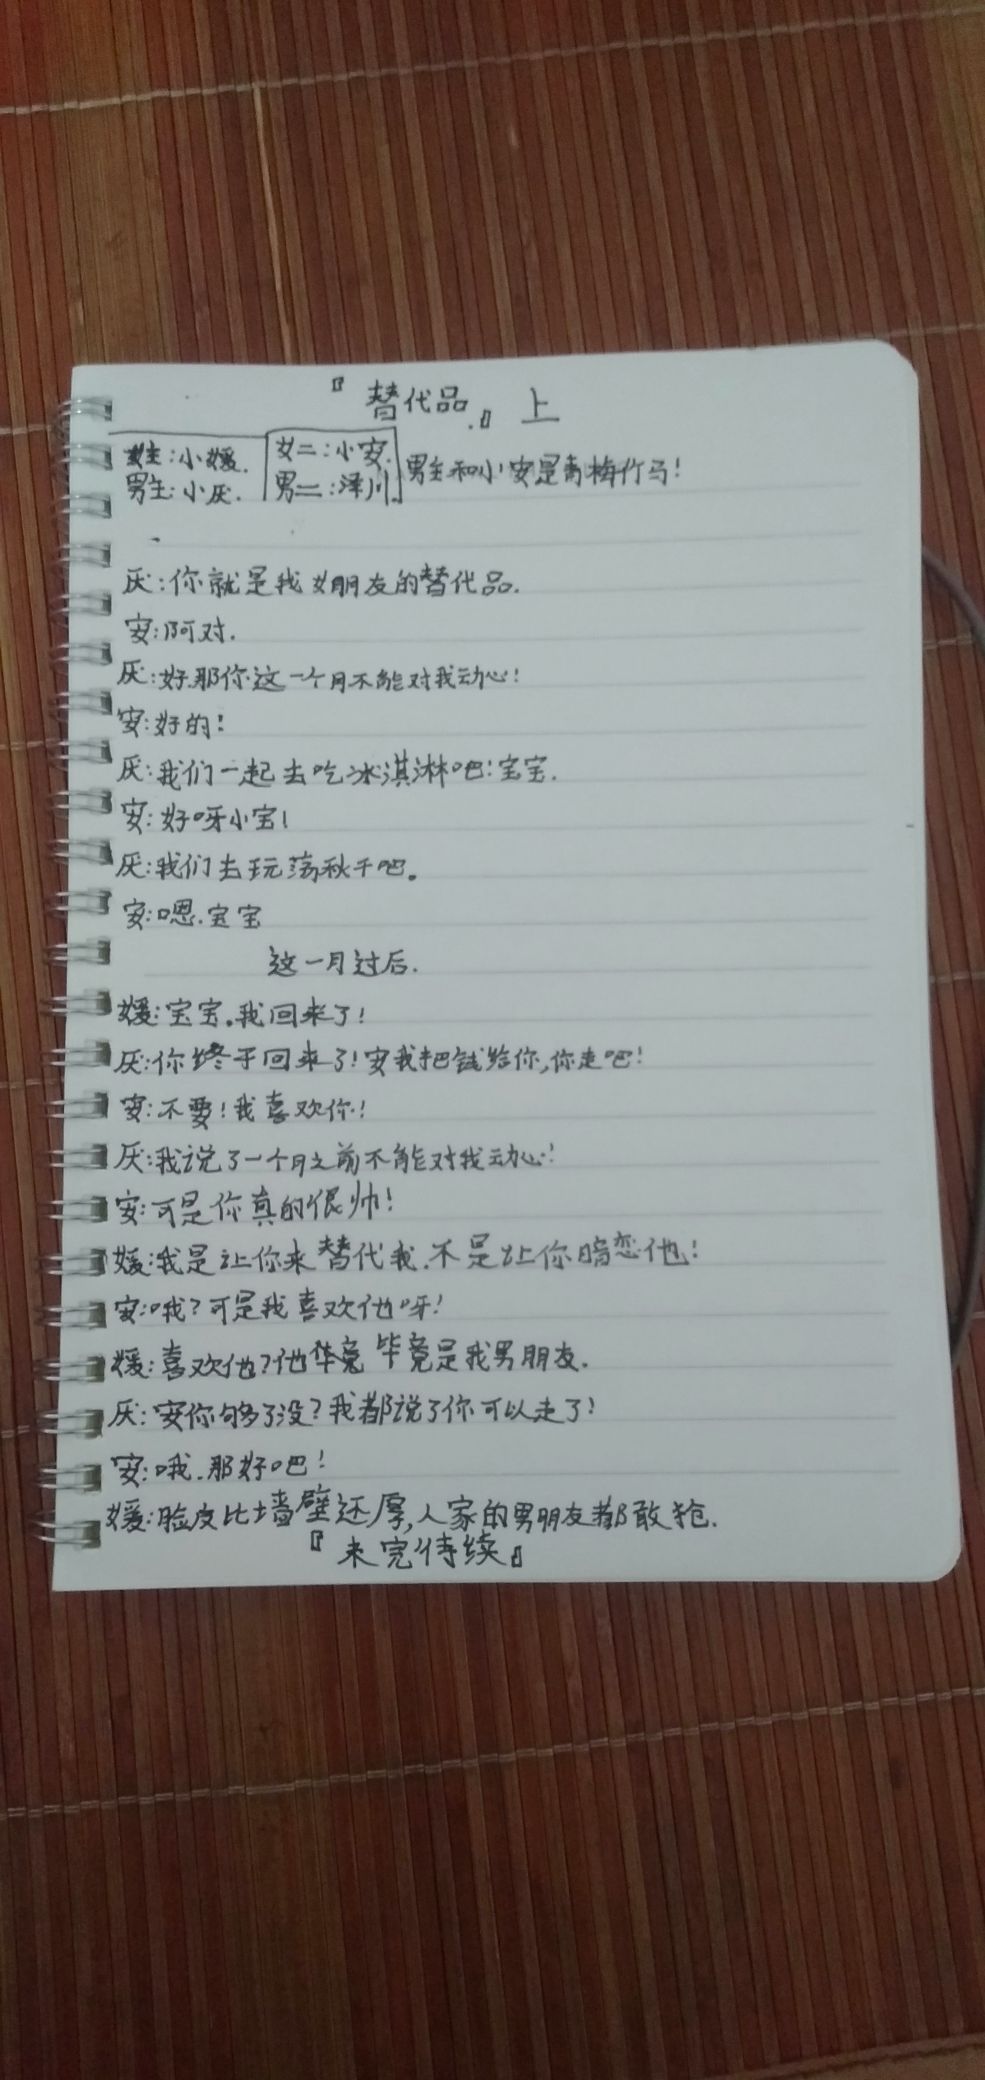 『替代品.』 上
女主:小媛. 女二:小安. 男主和小安是青梅竹马!
男主:小厌. 男二:泽川.
厌:你就是我女朋友的替代品.
安:阿对.
厌:好.那你这一个月不能对我动心!
安:好的!
厌:我们一起去吃冰淇淋吧!宝宝.
安:好呀小宝!
厌:我们去玩荡秋千吧.
安:嗯.宝宝
这一月过后.
媛:宝宝.我回来了!
厌:你终于回来了!安我把钱给你,你走吧!
安:不要!我喜欢你!
厌:我说了一个月之前不能对我动心!
安:可是你真的很帅!
媛:我是让你来替代我.不是让你暗恋他!
安:哦?可是我喜欢他呀!
媛:喜欢他?他毕竟 毕竟是我男朋友.
厌:安你够了没?我都说了你可以走了!
安:哦.那好吧!
媛:脸皮比墙壁还厚,人家的男朋友都敢抢.
『未完待续』